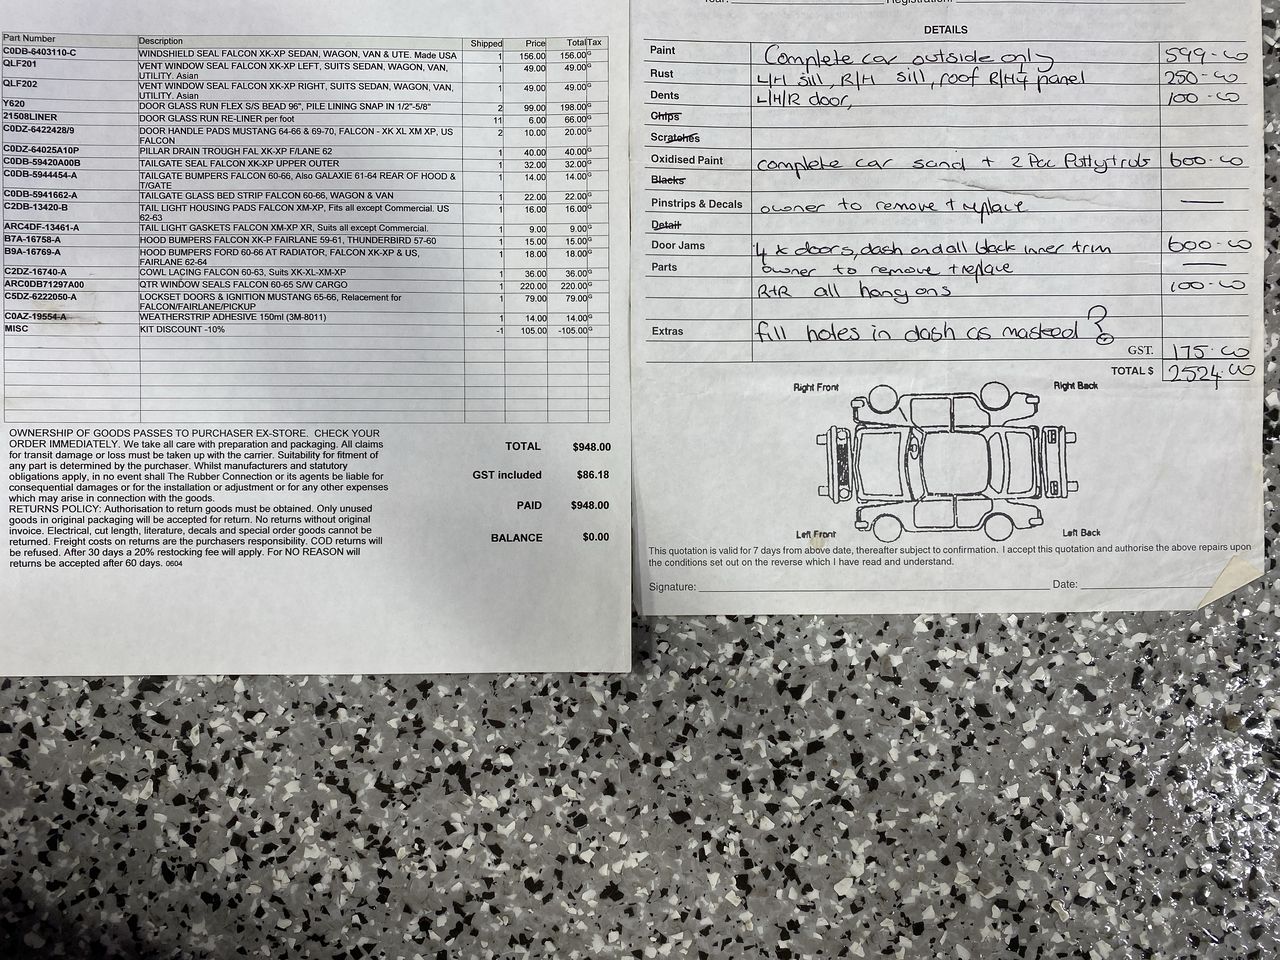 Part Number Description Shipped Price Total Tax
C0DB-6403110-C WINDSHIELD SEAL FALCON XK-XP SEDAN, WAGON, VAN & UTE. Made USA 1 156.00 156.00G
QLF201 VENT WINDOW SEAL FALCON XK-XP LEFT, SUITS SEDAN, WAGON, VAN, 1 49.00 49.00G
UTILITY. Asian
QLF202 VENT WINDOW SEAL FALCON XK-XP RIGHT, SUITS SEDAN, WAGON, VAN, 1 49.00 49.00G
UTILITY. Asian
Y620 DOOR GLASS RUN FLEX S/S BEAD 96", PILE LINING SNAP IN 1/2"-5/8" 2 99.00 198.00G
21508LINER DOOR GLASS RUN RE-LINER per foot 11 6.00 66.00G
C0DZ-6422428/9 DOOR HANDLE PADS MUSTANG 64-66 & 69-70, FALCON - XK XL XM XP, US 2 10.00 20.00G
FALCON
C0DZ-64025A10P PILLAR DRAIN TROUGH FAL XK-XP F/LANE 62 1 40.00 40.00G
C0DB-59420A00B TAILGATE SEAL FALCON XK-XP UPPER OUTER 1 32.00 32.00G
C0DB-5944454-A TAILGATE BUMPERS FALCON 60-66, Also GALAXIE 61-64 REAR OF HOOD & 1 14.00 14.00G
T/GATE
C0DB-5941662-A TAILGATE GLASS BED STRIP FALCON 60-66, WAGON & VAN 1 22.00 22.00G
C2DB-13420-B TAIL LIGHT HOUSING PADS FALCON XM-XP, Fits all except Commercial. US 1 16.00 16.00G
62-63
ARC4DF-13461-A TAIL LIGHT GASKETS FALCON XM-XP XR, Suits all except Commercial. 1 9.00 9.00G
B7A-16758-A HOOD BUMPERS FALCON XK-P FAIRLANE 59-61, THUNDERBIRD 57-60 1 15.00 15.00G
B9A-16769-A HOOD BUMPERS FORD 60-66 AT RADIATOR, FALCON XK-XP & US, 1 18.00 18.00G
FAIRLANE 62-64
C2DZ-16740-A COWL LACING FALCON 60-63, Suits XK-XL-XM-XP 1 36.00 36.00G
ARC0DB71297A00 QTR WINDOW SEALS FALCON 60-65 S/W CARGO 1 220.00 220.00G
C5DZ-6222050-A LOCKSET DOORS & IGNITION MUSTANG 65-66, Relacement for 1 79.00 79.00G
FALCON/FAIRLANE/PICKUP
C0AZ-19554-A WEATHERSTRIP ADHESIVE 150ml (3M-8011) 1 14.00 14.00G
MISC KIT DISCOUNT -10% -1 105.00 -105.00G
OWNERSHIP OF GOODS PASSES TO PURCHASER EX-STORE. CHECK YOUR
ORDER IMMEDIATELY. We take all care with preparation and packaging. All claims
for transit damage or loss must be taken up with the carrier. Suitability for fitment of
any part is determined by the purchaser. Whilst manufacturers and statutory
obligations apply, in no event shall The Rubber Connection or its agents be liable for
consequential damages or for the installation or adjustment or for any other expenses
which may arise in connection with the goods.
RETURNS POLICY: Authorisation to return goods must be obtained. Only unused
goods in original packaging will be accepted for return. No returns without original
invoice. Electrical, cut length, literature, decals and special order goods cannot be
returned. Freight costs on returns are the purchasers responsibility. COD returns will
be refused. After 30 days a 20% restocking fee will apply. For NO REASON will
returns be accepted after 60 days. 0604
TOTAL $948.00
GST included $86.18
PAID $948.00
BALANCE $0.00
DETAILS
Paint Complete car outside only 599-00
Rust L/H sill, R/H sill, roof R/H 1/4 panel 250-00
Dents L/H/R door, 100-00
Chips
Scratches
Oxidised Paint complete car sand + 2 Pac Putty 600-00
Blacks
Pinstripes & Decals owner to remove + replace —
Detail
Door Jams 4 x doors, dash and all black inner trim 600-00
Parts owner to remove + replace —
R+R all hang ons 100-00
Extras fill holes in dash as masked ?
GST. 175-00
TOTAL $ 2524.00
Right Front Right Back
Left Front Left Back
This quotation is valid for 7 days from above date, thereafter subject to confirmation. I accept this quotation and authorise the above repairs upon
the conditions set out on the reverse which I have read and understand.
Signature: Date: